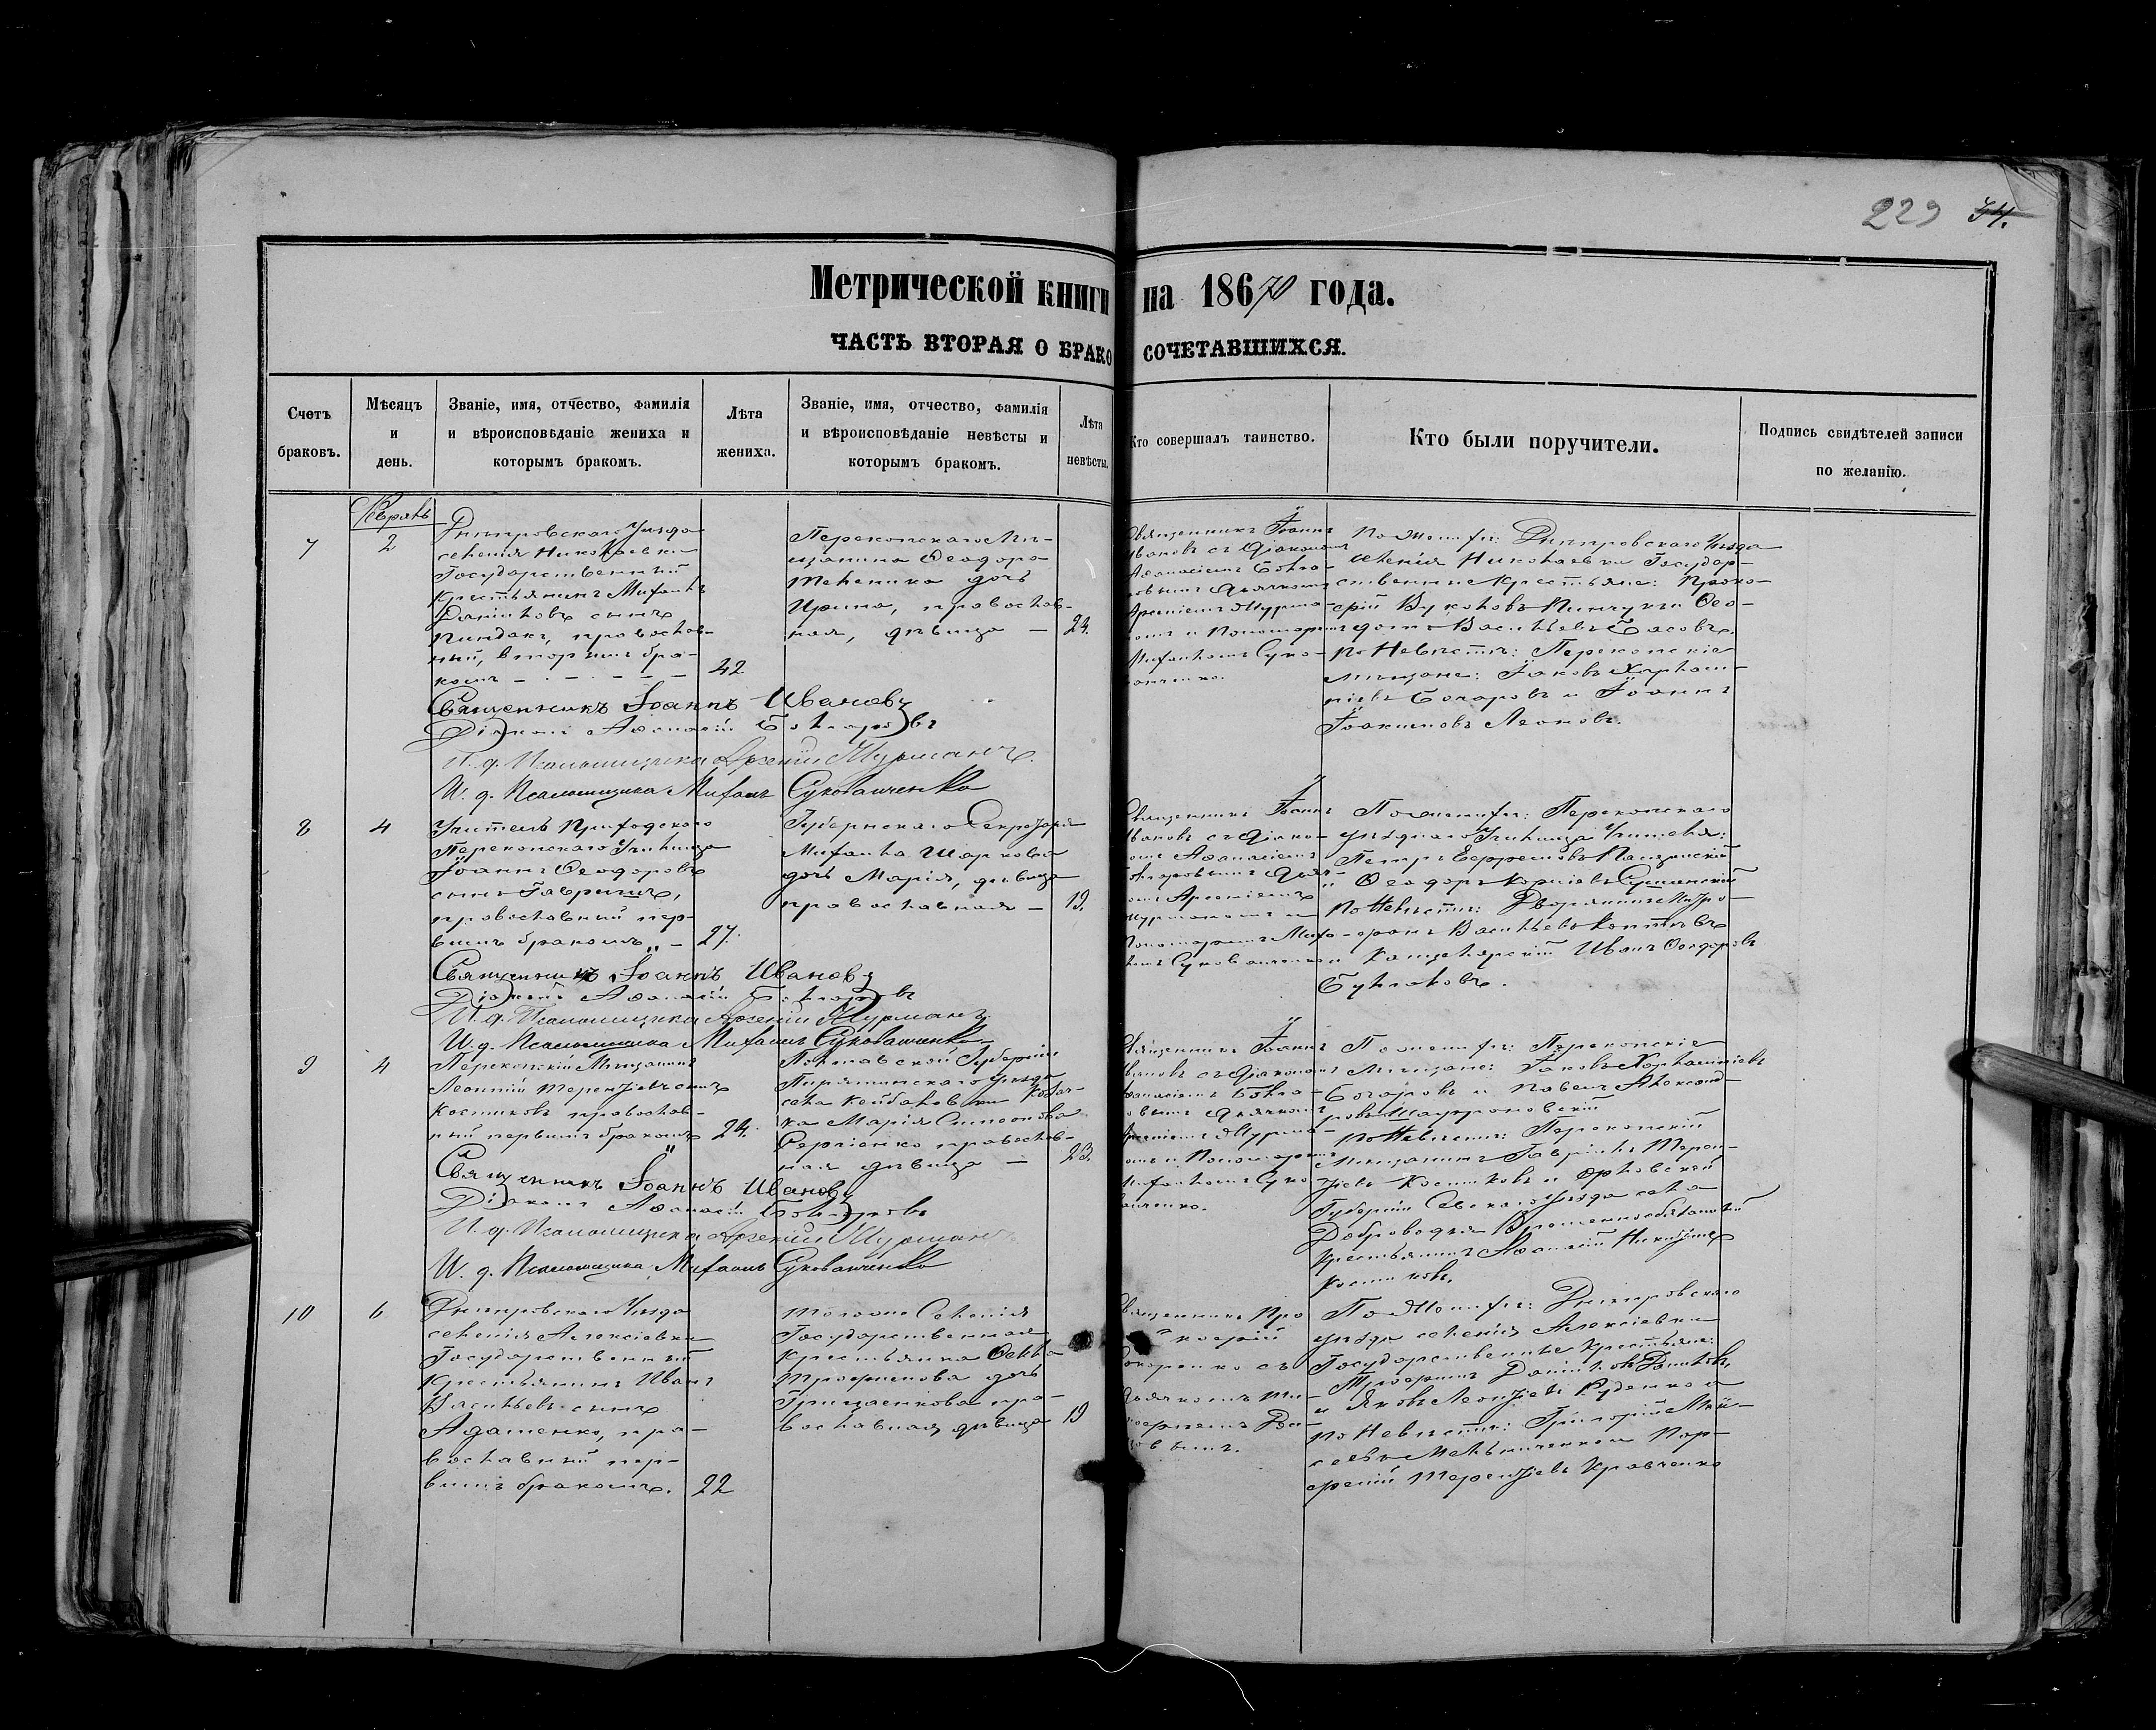 229 34.
Метрической книги на 18670 года.
ЧАСТЬ ВТОРАЯ О БРАКОСОЧЕТАВШИХСЯ.
Счетъ
браковъ.
Мѣсяцъ
и
день.
Званіе, имя, отчество, фамилія
и вѣроисповѣданіе жениха и
которымъ бракомъ.
Лѣта
жениха.
Званіе, имя, отчество, фамилія
и вѣроисповѣданіе невѣсты и
которымъ бракомъ.
Лѣта
невѣсты.
Кто совершалъ таинство.
Кто были поручители.
Подпись свидѣтелей записи
по желанію.
7
2
Днѣпровскаго Уѣзда
селенія Николаевки
Государственный
крестьянинъ Михаилъ
Даніиловъ сынъ
православ-
ный, вторымъ бра-
комъ
42
Перекопскаго Мѣ-
щанина Ѳеодора
дочь
Ирина, православ-
ная, дѣвица
24.
Священникъ Іоаннъ
Ивановъ съ діакономъ
Аѳанасіемъ Болга-
ровымъ дьячкомъ
Арсеніемъ Мурма-
номъ и Пономаремъ
Михаиломъ Суко-
ванченко.
По Женихѣ: Днѣпровскаго Уѣзда
селенія Николаевки Государ-
ственные крестьяне: Проко-
фій и Ѳео-
дотъ Васильевъ
по Невѣстѣ: Перекопскіе
Мѣщане: Іаковъ Харлам-
піевъ Бочаровъ и Іоаннъ
Іоакимовъ Леоновъ.
Священникъ Іоаннъ Ивановъ
Діаконъ Аѳанасій Болгаровъ
И. д. Псаломщика Арсеній Мурманъ
И. д. Псаломщика Михаилъ Сукованченко
8
4
Учитель Приходскаго
Перекопскаго Училища
Іоаннъ Ѳеодоровъ
сынъ
православный пер-
вымъ бракомъ
27.
Губернскаго Секретаря
Михаила Шаркова
дочь Марія, дѣвица
православная
19.
Священникъ Іоаннъ
Ивановъ съ діако-
номъ Аѳанасіемъ
Болгаровымъ дьяч-
комъ Арсеніемъ
Мурманомъ и
Пономаремъ Миха-
иломъ Сукованченко
По Женихѣ: Перекопскаго
уѣзднаго Училища Учителя:
Петръ Ефремовъ
и Ѳеодоръ
по Невѣстѣ: Дворянинъ Митро-
фанъ Васильевъ
и Канцелярскій Иванъ Ѳеодоровъ
Булгаковъ.
Священникъ Іоаннъ Ивановъ
Діаконъ Аѳанасій Болгаровъ
И. д. Псаломщика Арсеній Мурманъ
И. д. Псаломщика Михаилъ Сукованченко
9
4
Перекопскій Мѣщанинъ
Леонтій Терентьевъ сынъ
Костиковъ православ-
ный первымъ бракомъ
24.
Полтавской Губерніи
Пирятинскаго уѣзда
села Кейбаловки Козач-
ка Марія Симеонова
Сергіенко православ-
ная дѣвица
23.
Священникъ Іоаннъ
Ивановъ съ діакономъ
Аѳанасіемъ Болга-
ровымъ дьячкомъ
Арсеніемъ Мурма-
номъ и Пономаремъ
Михаиломъ Суко-
ванченко.
По Женихѣ: Перекопскіе
Мѣщане: Іаковъ Харлампіевъ
Бочаровъ и Павелъ Александ-
ровъ
по Невѣстѣ: Перекопскій
Мѣщанинъ Гавріилъ Терен-
тьевъ Костиковъ и Орловской
Губерніи Севскаго уѣзда села
Доброводья Временнообязанный
крестьянинъ Аѳанасій Никитинъ
Костиковъ.
Священникъ Іоаннъ Ивановъ
Діаконъ Аѳанасій Болгаровъ
И. д. Псаломщика Арсеній Мурманъ
И. д. Псаломщика Михаилъ Сукованченко
10
6
Днѣпровскаго Уѣзда
селенія Алексіевки
Государственный
Крестьянинъ Иванъ
Васильевъ сынъ
Адаменко, пра-
вославный пер-
вымъ бракомъ.
22
Тогоже Селенія
Государственная
Крестьянка Ѳекла
Трофимова дочь
Грищенкова пра-
вославная дѣвица
19
Священникъ Про-
кофій
съ
Дьячкомъ Ти-
моѳеемъ
По Женихѣ: Днѣпровскаго
уѣзда селенія Алексіевки
Государственные Крестьяне:
Трофимъ Даніиловъ
и Яковъ Леонтьевъ Руденко и
по Невѣстѣ: Григорій Мои-
сеевъ Мельниченко и Пор-
фирій Терентьевъ Кравченко